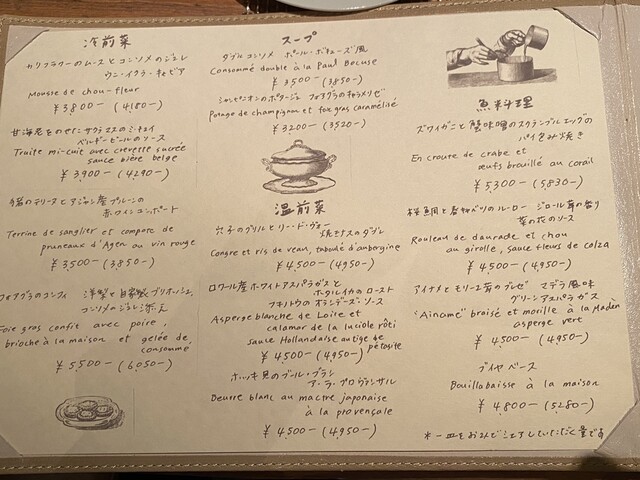 冷前菜
カリフラワーのムースとコンソメのジュレ
ウニ・イクラ・キャビア
Mousse de chou-fleur
¥3800- (4180-)
甘海老をのせたサクラマスのミ・キュイ
ベルギービールのソース
Truite mi-cuit avec crevette sucrée
sauce bière belge
¥3,900- (4290-)
のテリーヌとアジャン産プルーンの
赤ワインコンポート
Terrine de sanglier et compote de
pruneaux d'Agen au vin rouge
¥3,500- (3850-)
フォアグラのコンフィ 洋梨と自家製ブリオッシュ、
コンソメのジュレ添え
Foie gras confit avec poire,
brioche à la maison et gelée de
consommé
¥5,500- (6,050-)
スープ
ダブルコンソメ ポール・ボキューズ風
Consommé double à la Paul Bocuse
¥3,500 (3850-)
シャンピニオンのポタージュ フォアグラのキャラメリゼ
Potage de champignon et foie gras caramélisé
¥3200- (3520-)
温前菜
穴子のグリルとリ・ド・ヴォー
焼きナスのタブレ
Congre et ris de veau, taboulé d'aubergine
¥4,500 (4950-)
ロワール産ホワイトアスパラガスと
ホタルイカのロースト
フキノトウのオランデーズ・ソース
Asperge blanche de Loire et
calamar de la luciole rôti
sauce Hollandaise au tige de
pétasite
¥4,500 (4,950-)
ホッキ貝のブール・ブラン
ア・ラ・プロヴァンサル
Beurre blanc au mactre japonaise
à la provençale
¥4,500- (4,950-)
魚料理
ズワイガニと蟹味噌のスクランブルエッグの
パイ包み焼き
En croute de crabe et
œufs brouillé au corail
¥5,300- (5,830-)
桜鯛と春キャベツのルーロー ジロール茸の香り
菜の花のソース
Rouleau de daurade et chou
au girolle, sauce fleurs de colza
¥4,500- (4,950-)
アイナメとモリーユ茸のブレゼ マデラ風味
グリーンアスパラガス
"Ainamé" braisé et morille à la Madèr
asperge vert
¥4,500 (4950-)
ブイヤベース
Bouillabaisse à la maison
¥4,800- (5,280-)
*一皿をお2人でシェアしていただく量です